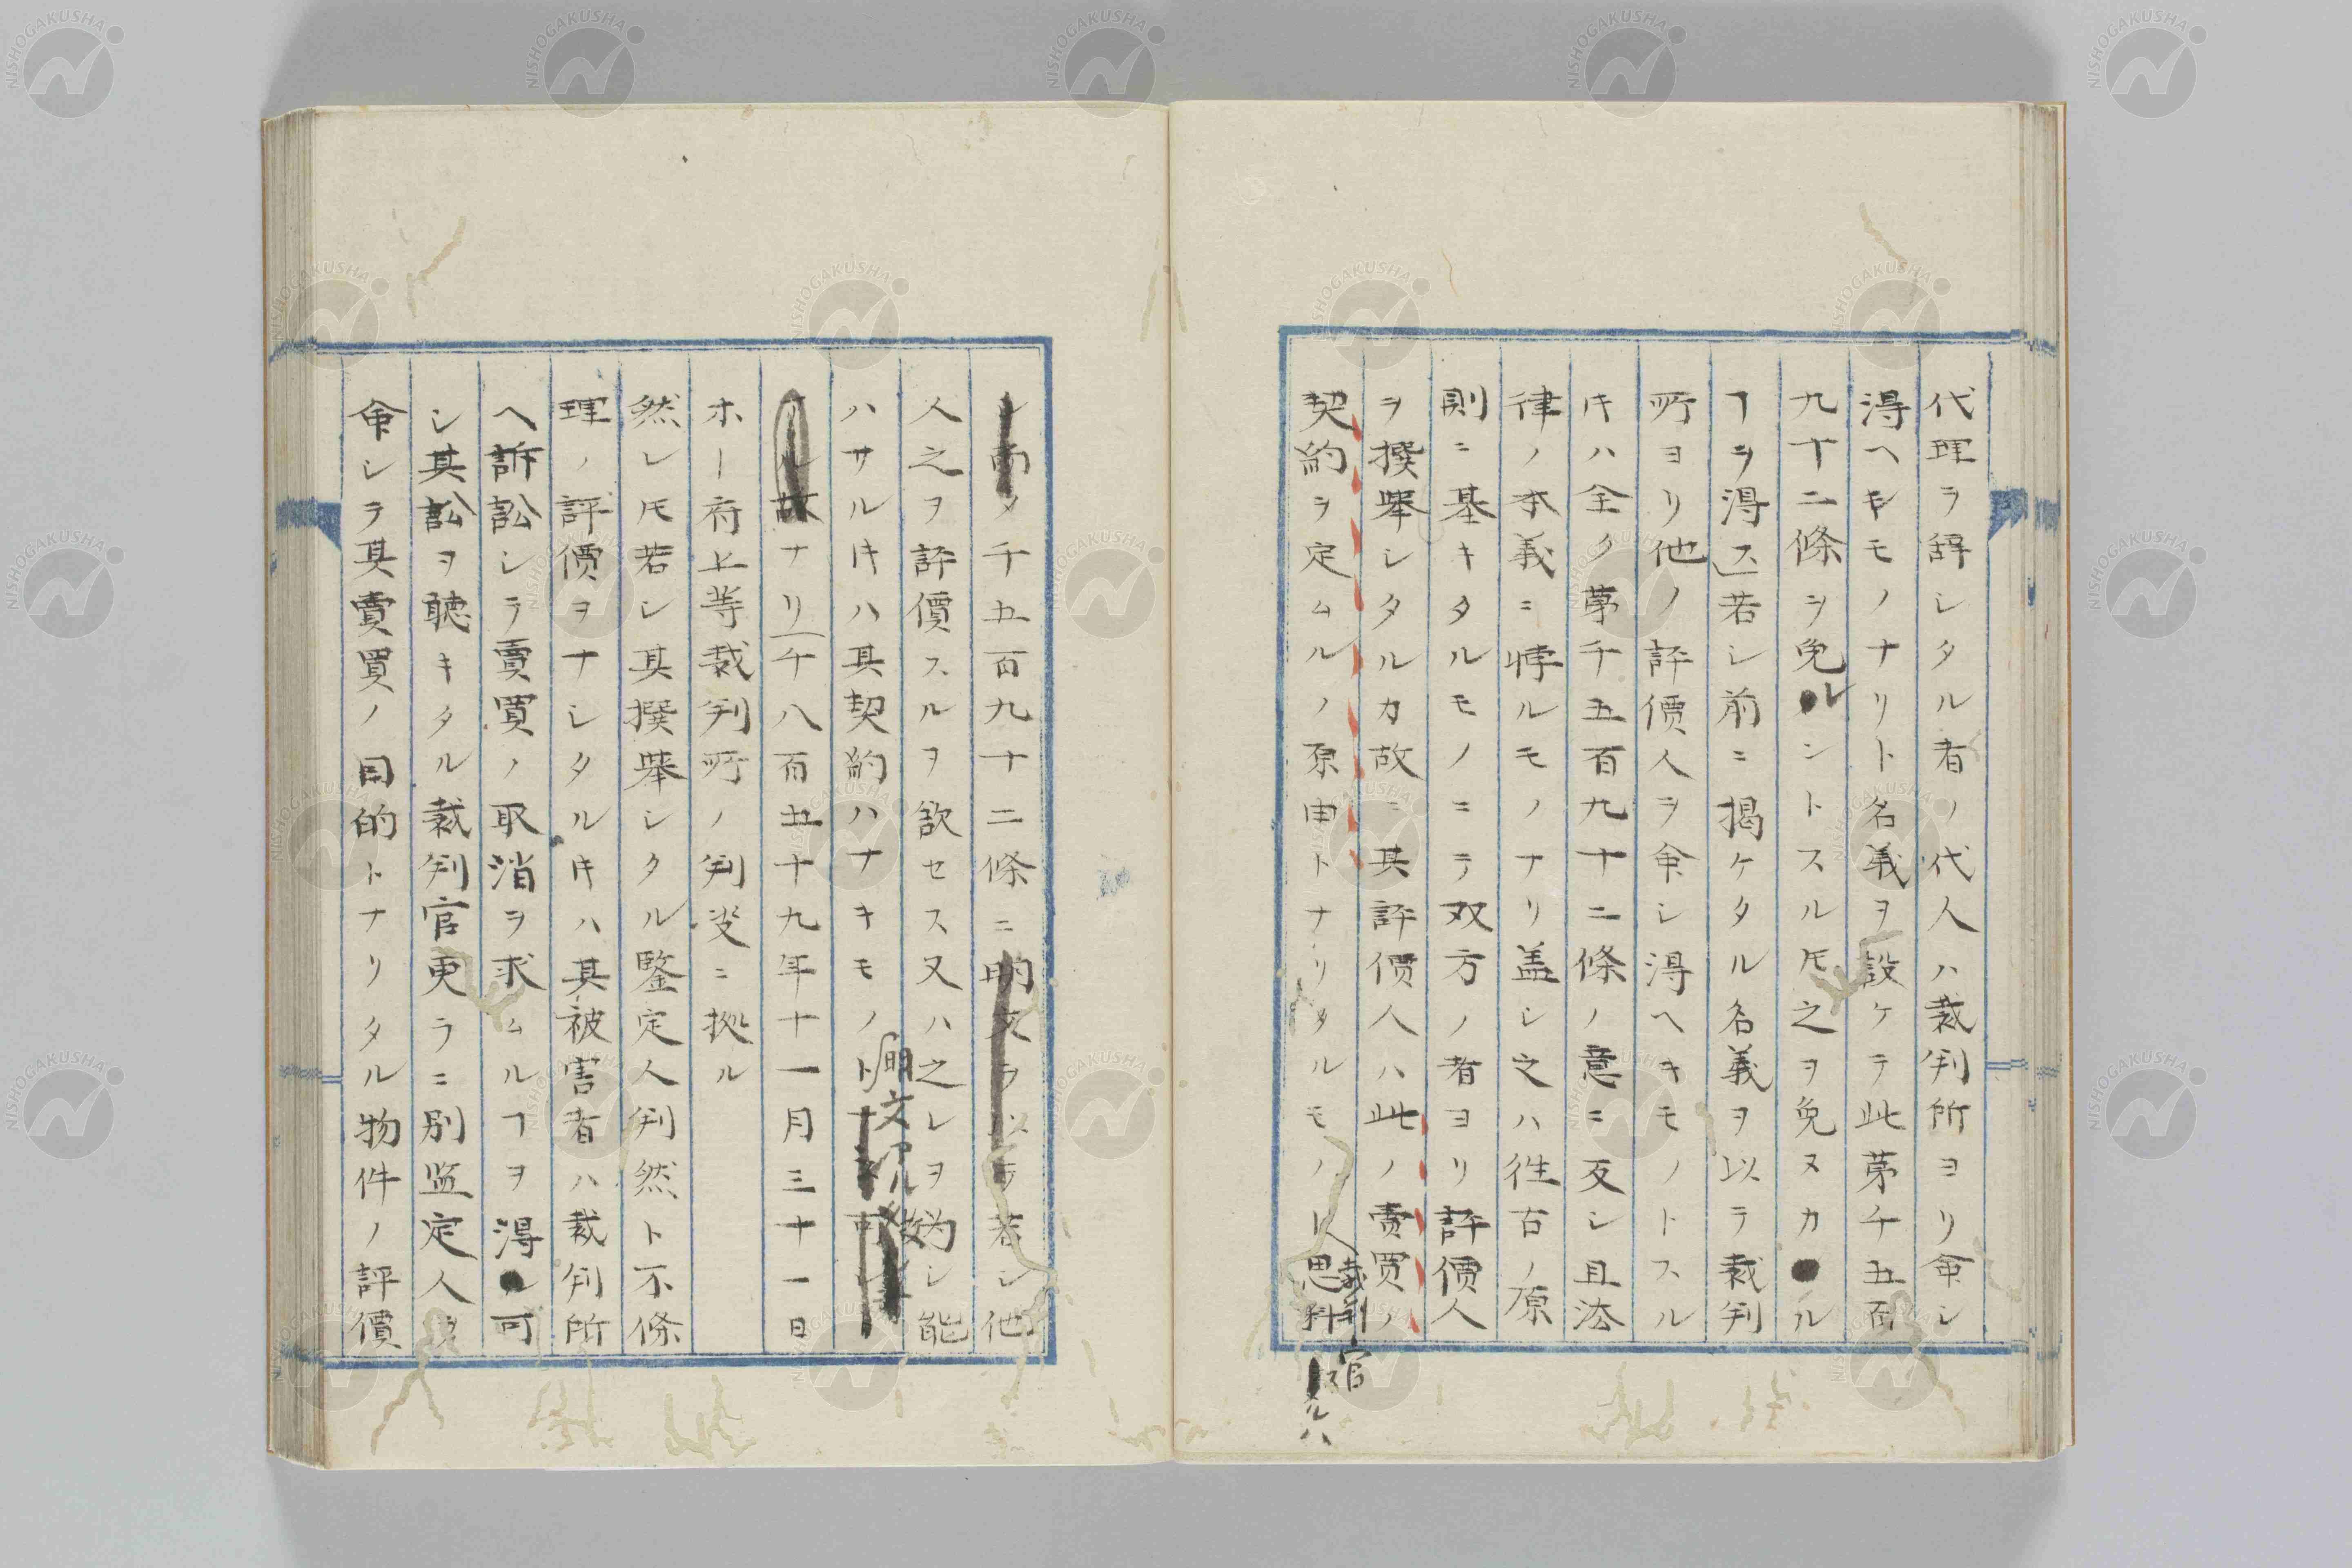 代理ヲ辞シタル者ノ代人ハ裁判所ヨリ命シ
得ヘキモノナリト名義ヲ設ケテ此第千五百
九十二條ヲ免レントスル𪜈之ヲ免ヌカル
ヿヲ得ス」若シ前ニ掲ケタル名義ヲ以テ裁判
所ヨリ他ノ評價人ヲ命シ得ヘキモノトスル
𪜈ハ全ク第千五百九十二條ノ意ニ反シ且法
律ノ本義ニ悖ルモノナリ盖シ之ハ徃古ノ原
則ニ基キタルモノニテ双方ノ者ヨリ評價人
ヲ撰擧シタルカ故ニ其評價人ハ此ノ賣買ノ
契約ヲ定ムルノ原由トナリタルモノト思料
裁判官
ルハ
千五百九十二條ニ
若シ他
人之ヲ評價スルヲ欲セス又ハ之レヲ為シ能
ハサル𪜈ハ其契約ハナキモノト
明文
ナリ」千八百五十九年十一月三十一日
ホー府上等裁判所ノ判决ニ拠ル
然レ𪜈若シ其撰擧シタル鑒定人判然ト不條
理ノ評價ヲナシタル𪜈ハ其被害者ハ裁判所
ヘ訴訟シテ賣買ノ取消ヲ求ムルヿヲ得可
シ其訟ヲ聴キタル裁判官更ラニ別監定人ヲ
命シテ其賣買ノ目的トナリタル物件ノ評價
NISHOGAKUSHA